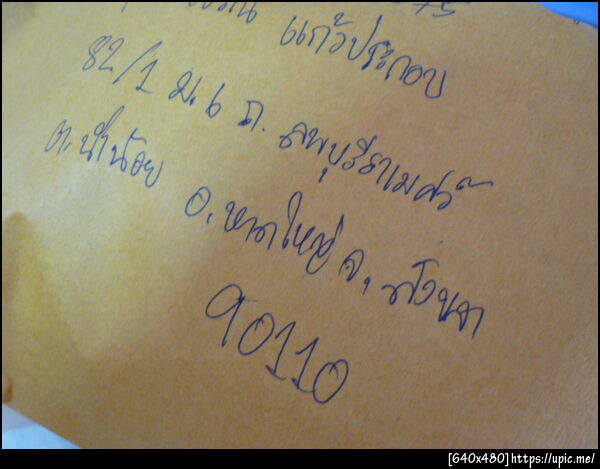 แก้วประกอบ
82/1 ม.6 ถ. ลพบุรีราเมศวร์
ต.น้ำน้อย อ.หาดใหญ่ จ.สงขลา
90110
[640x480]https://upic.me/